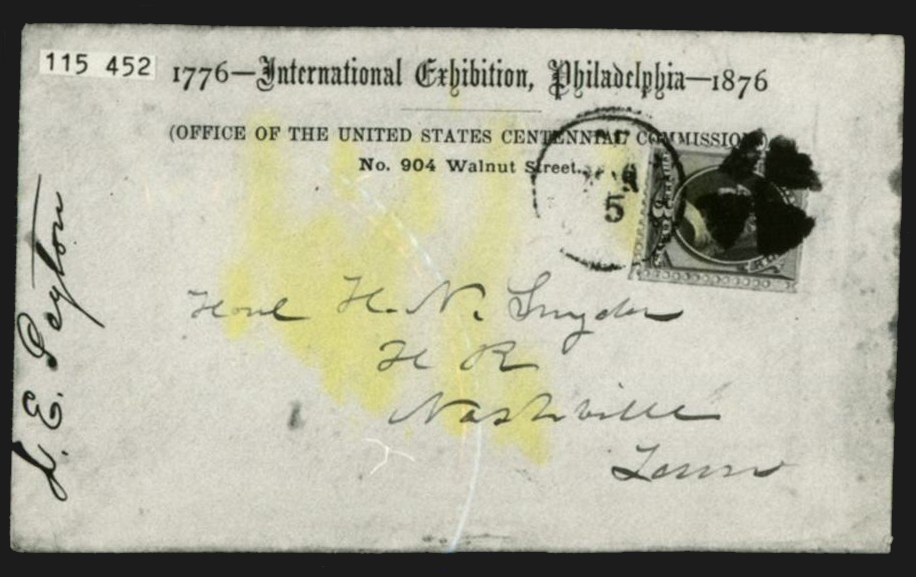 115 452
1776—International Exhibition, Philadelphia—1876
(OFFICE OF THE UNITED STATES CENTENNIAL COMMISSION)
No. 904 Walnut Street.
5
Honl H. N. Snyder
H R
Nashville
Tenn
J. E. Peyton